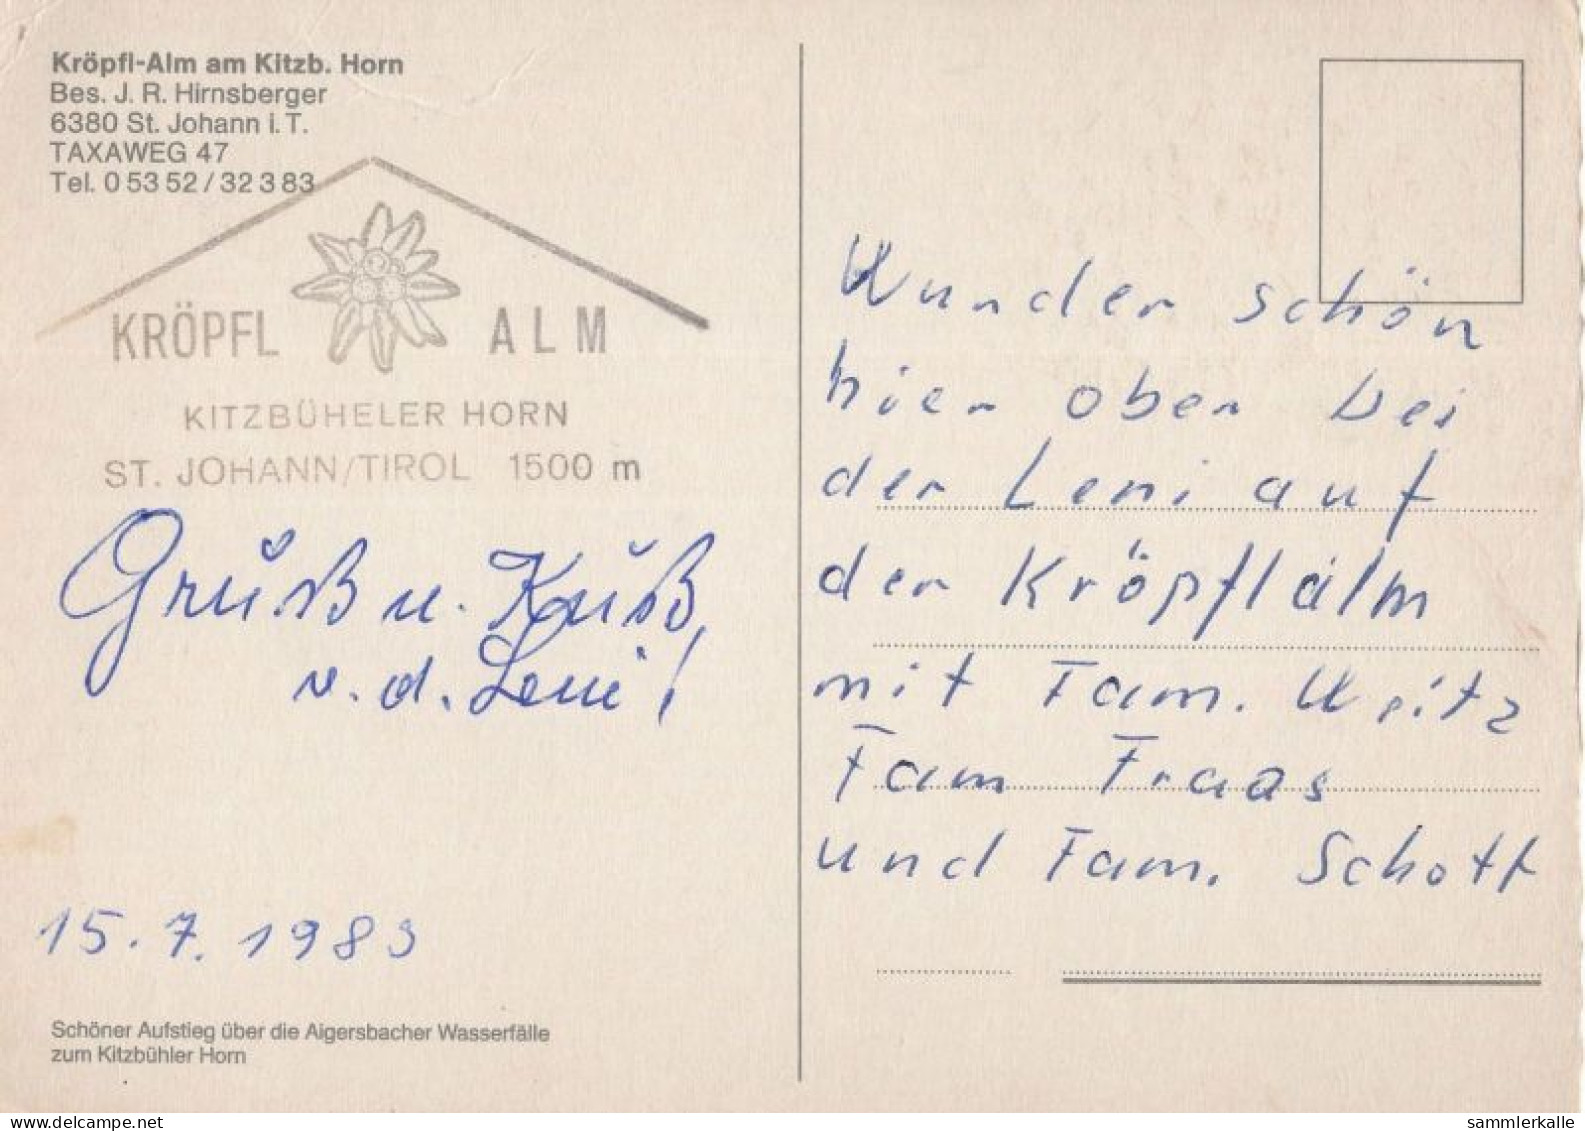 Kröpfl-Alm am Kitzb. Horn
Bes. J. R. Hirnsberger
6380 St. Johann i. T.
TAXAWEG 47
Tel. 0 53 52 / 32 3 83
KRÖPFL ALM
KITZBÜHELER HORN
ST. JOHANN/TIROL 1500 m
Gruß u. Kuß,
v. d. Leni!
15. 7. 1989
Schöner Aufstieg über die Aigersbacher Wasserfälle
zum Kitzbühler Horn
Wunder schön
hier oben bei
der Leni auf
der Kröpflalm
mit Fam. Weitz
Fam Fraas
und Fam. Schott
delcampe.net
sammlerkalle